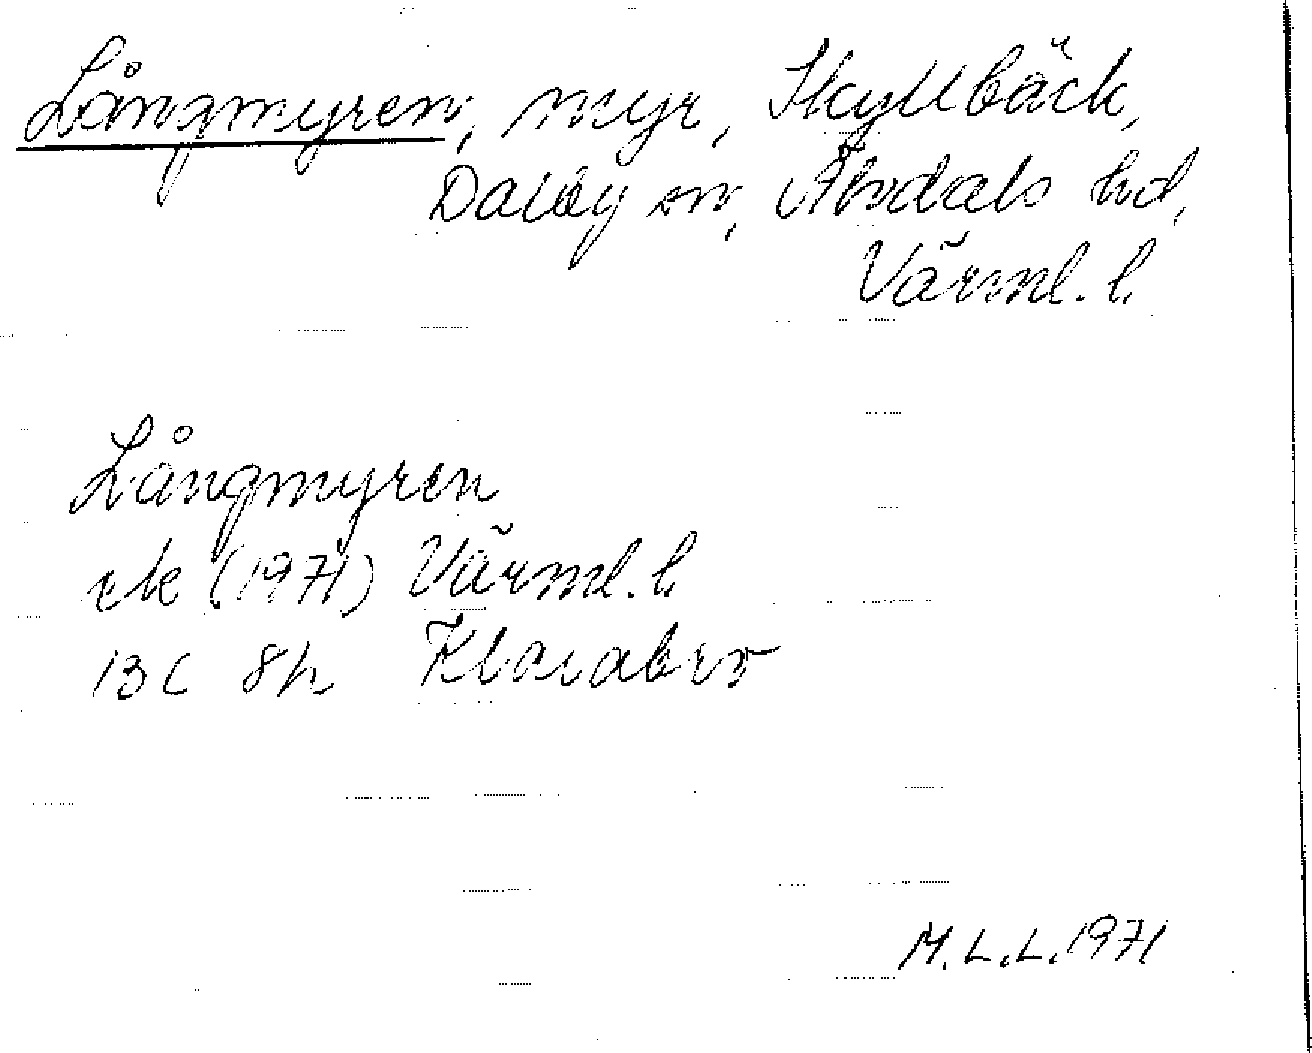 Långmyren, myr, Skyllbäck,
Dalby sn, Älvdals hd,
Värml. l.
Långmyren
ek (1971) Värml. l.
13C 8h Klarabro
M.L.L. 1971